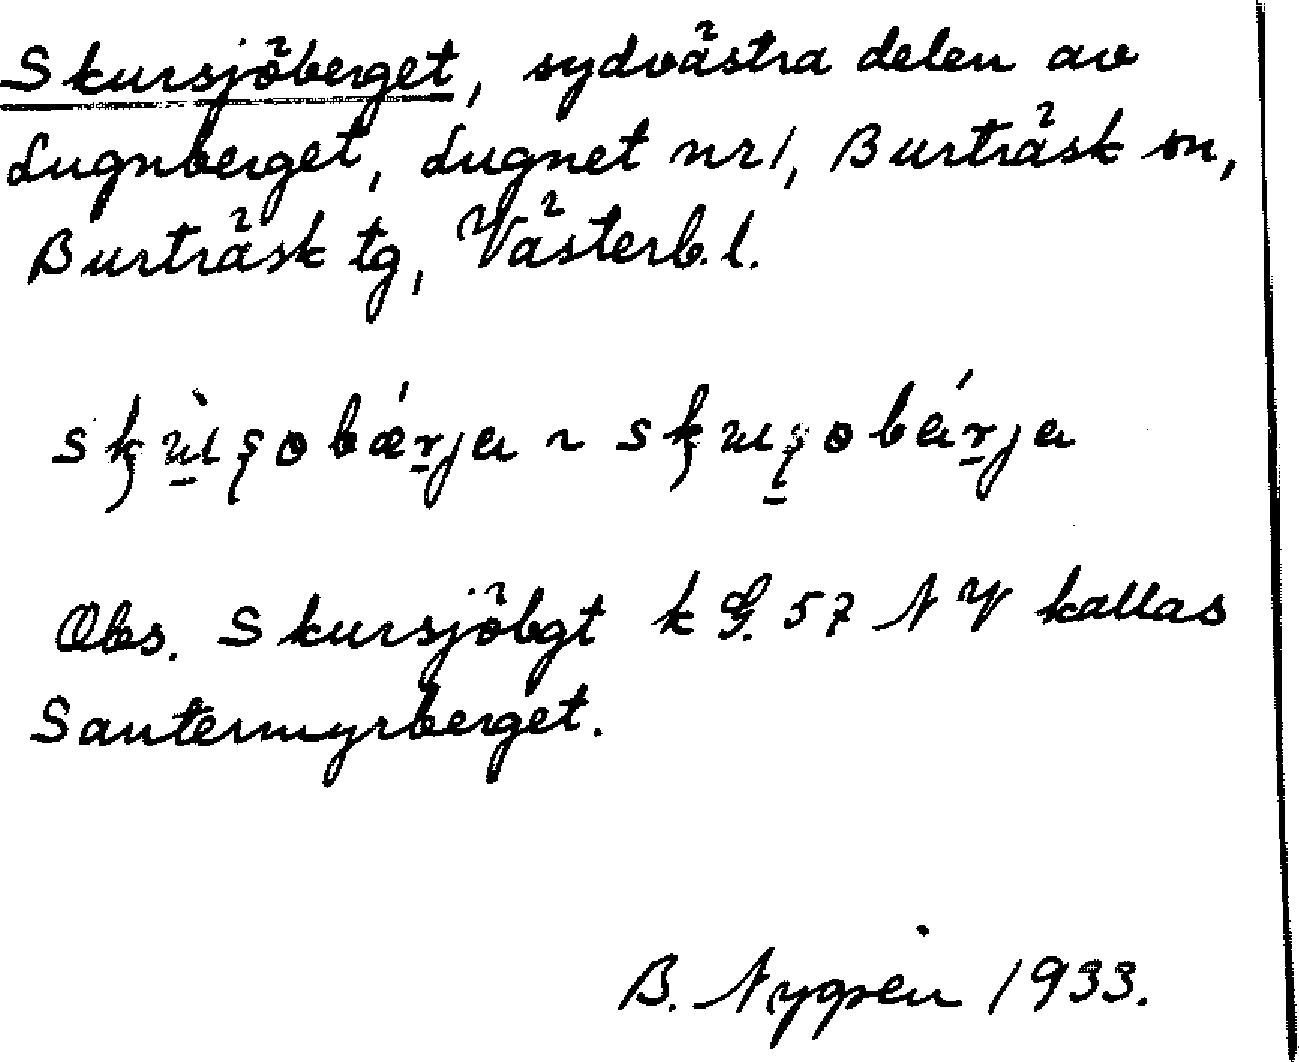 Skursjöberget, sydvästra delen av
Lugnberget, Lugnet nr 1, Burträsk sn,
Burträsk tg, Västerb. l.
Obs. Skursjöbgt k G. 57 NV kallas
Santermyrberget.
B. Nygren 1933.